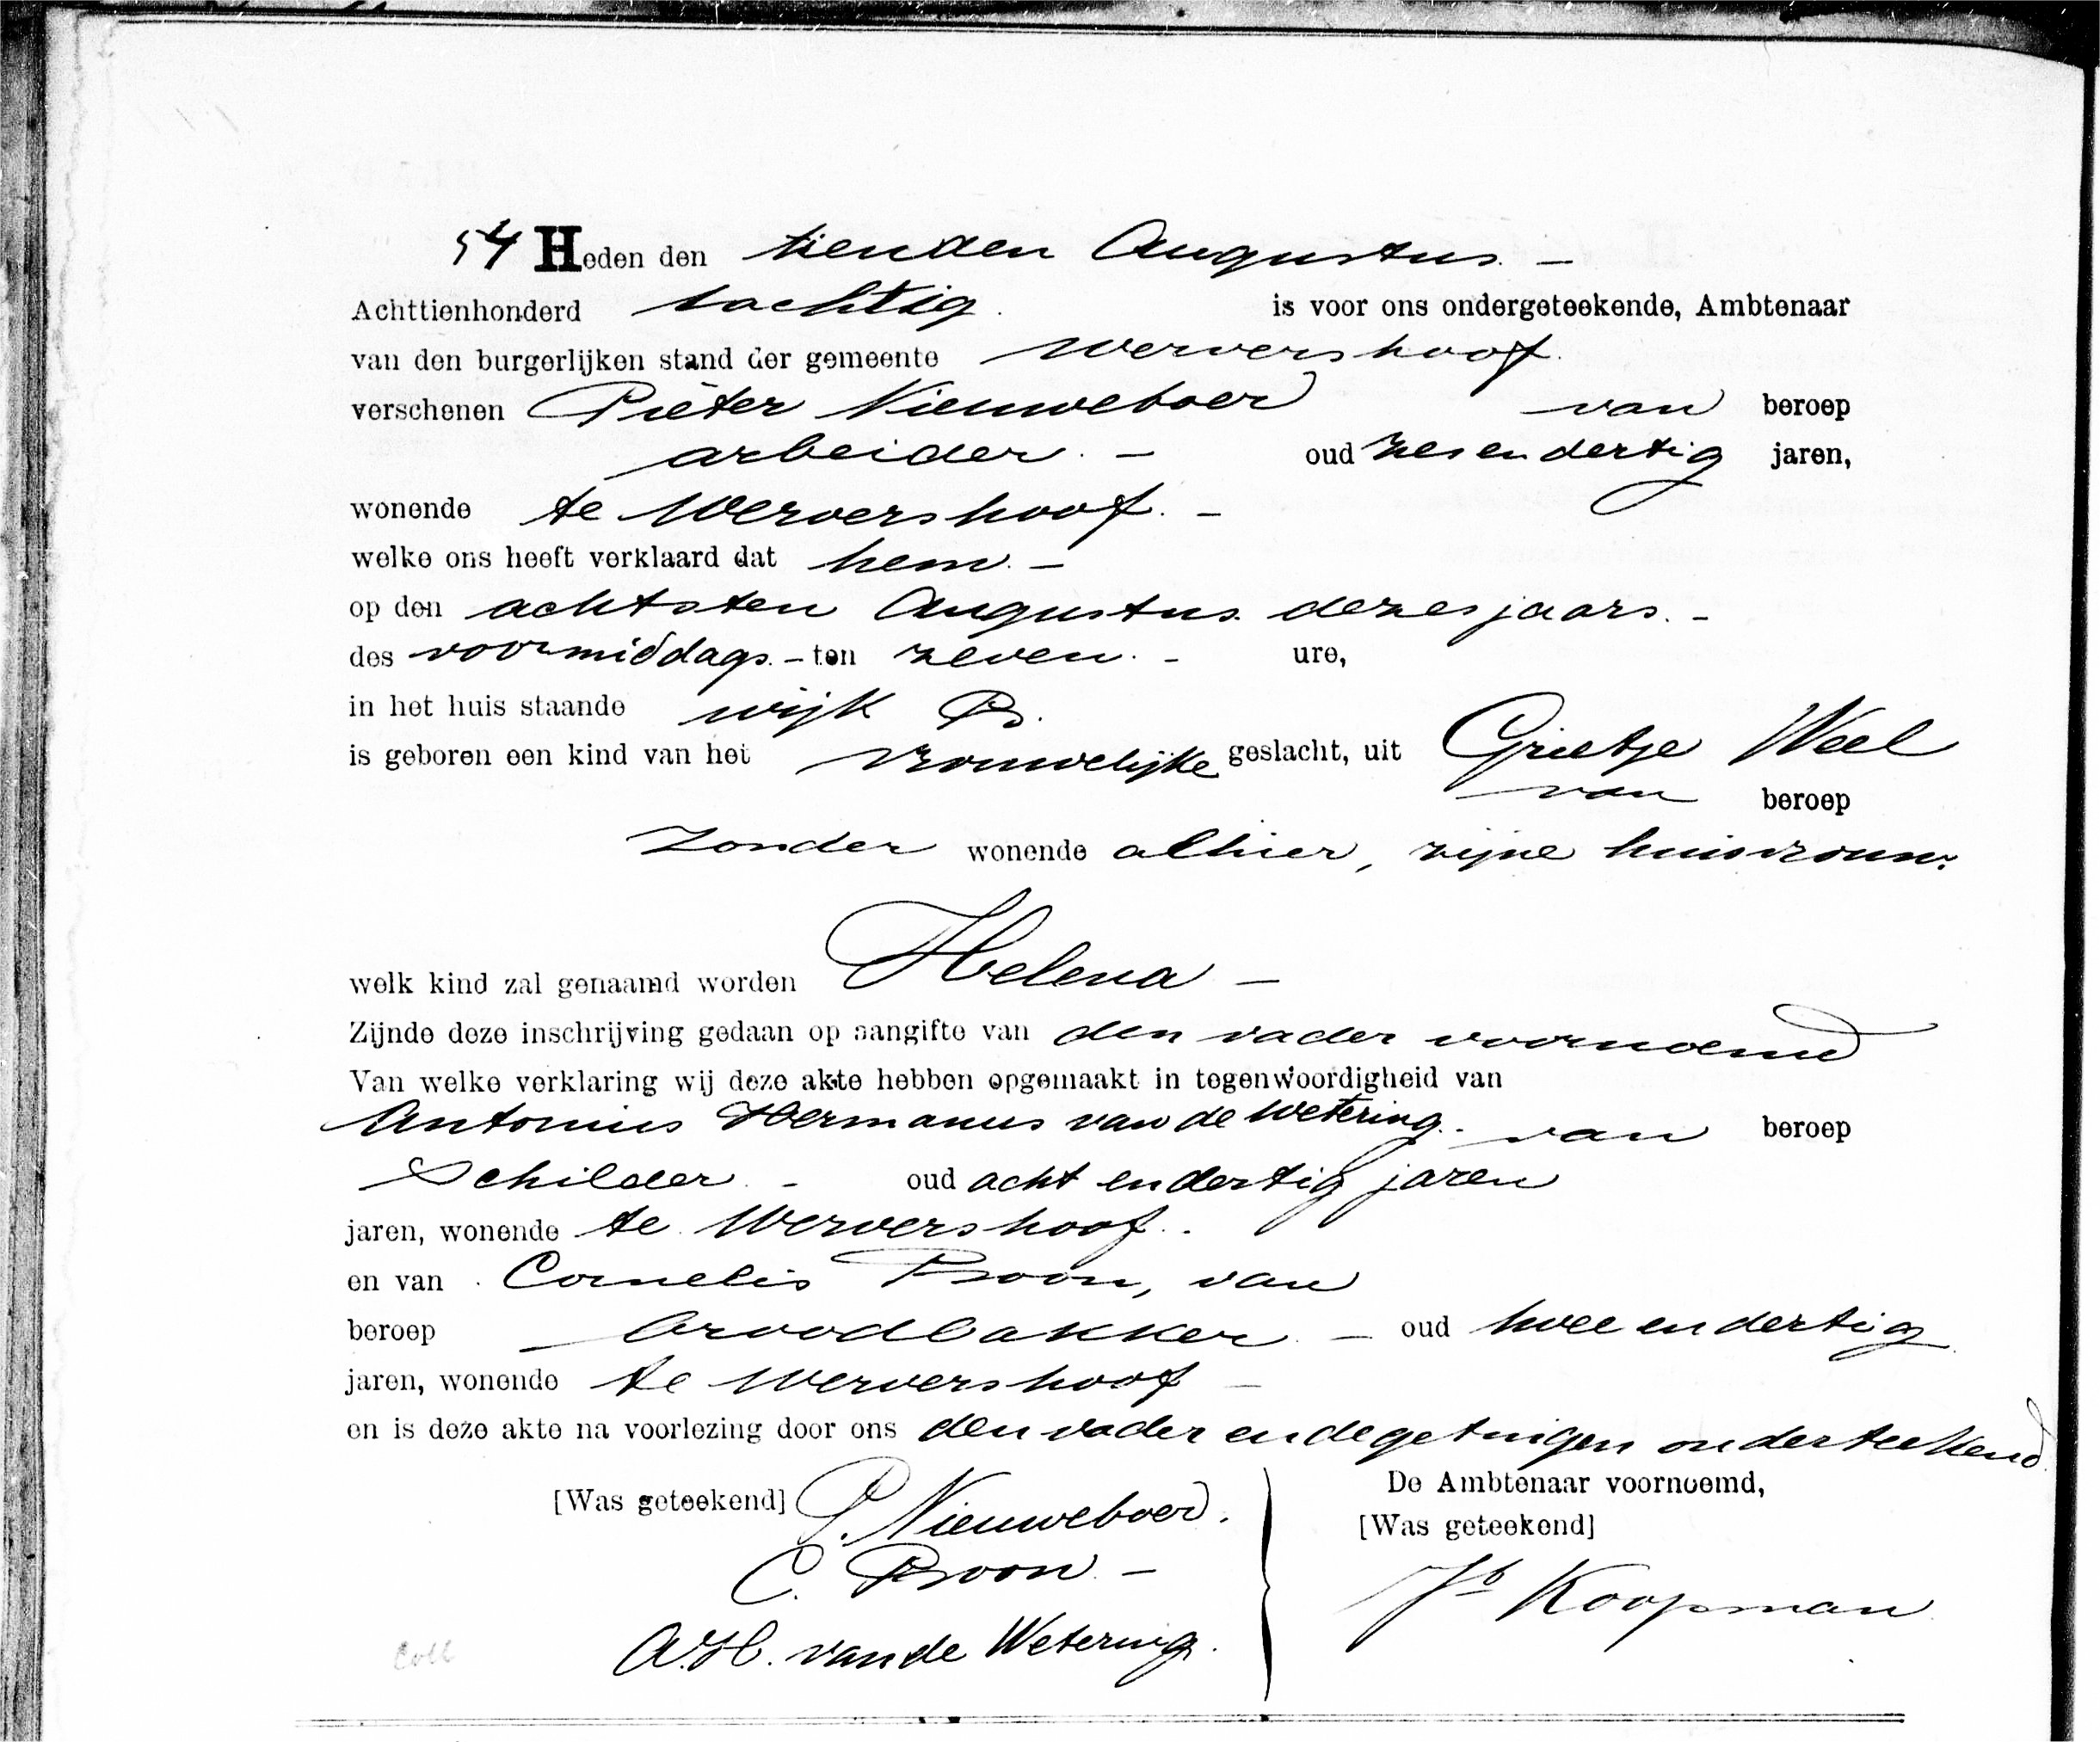 54 Heden den tienden Augustus. –
Achttienhonderd tachtig. is voor ons ondergeteekende, Ambtenaar
van den burgerlijken stand der gemeente Wervershoof.
verschenen Pieter Nieuweboer van beroep
arbeider. – oud zes en dertig jaren,
wonende te Wervershoof. –
welke ons heeft verklaard dat hem. –
op den achtsten Augustus dezes jaars. –
des voormiddags. – ten zeven. – ure,
in het huis staande wijk B.
is geboren een kind van het vrouwelijke geslacht, uit Grietje Weel
van beroep
zonder wonende alhier, zijne huisvrouw.
welk kind zal genaamd worden Helena –
Zijnde deze inschrijving gedaan op aangifte van den vader voornoemd
Van welke verklaring wij deze akte hebben opgemaakt in tegenwoordigheid van
Antonius Hermanus van de Wetering. van beroep
Schilder. – oud acht en dertig jaren
jaren, wonende te Wervershoof.
en van Cornelis Broon, van
beroep broodbakker. – oud twee en dertig
jaren, wonende te Wervershoof –
en is deze akte na voorlezing door ons den vader en de getuigen onderteekend.
[Was geteekend] P. Nieuweboer.
C. Broon. –
A.H. van de Wetering.
De Ambtenaar voornoemd,
[Was geteekend]
Jb Koopman
Coll